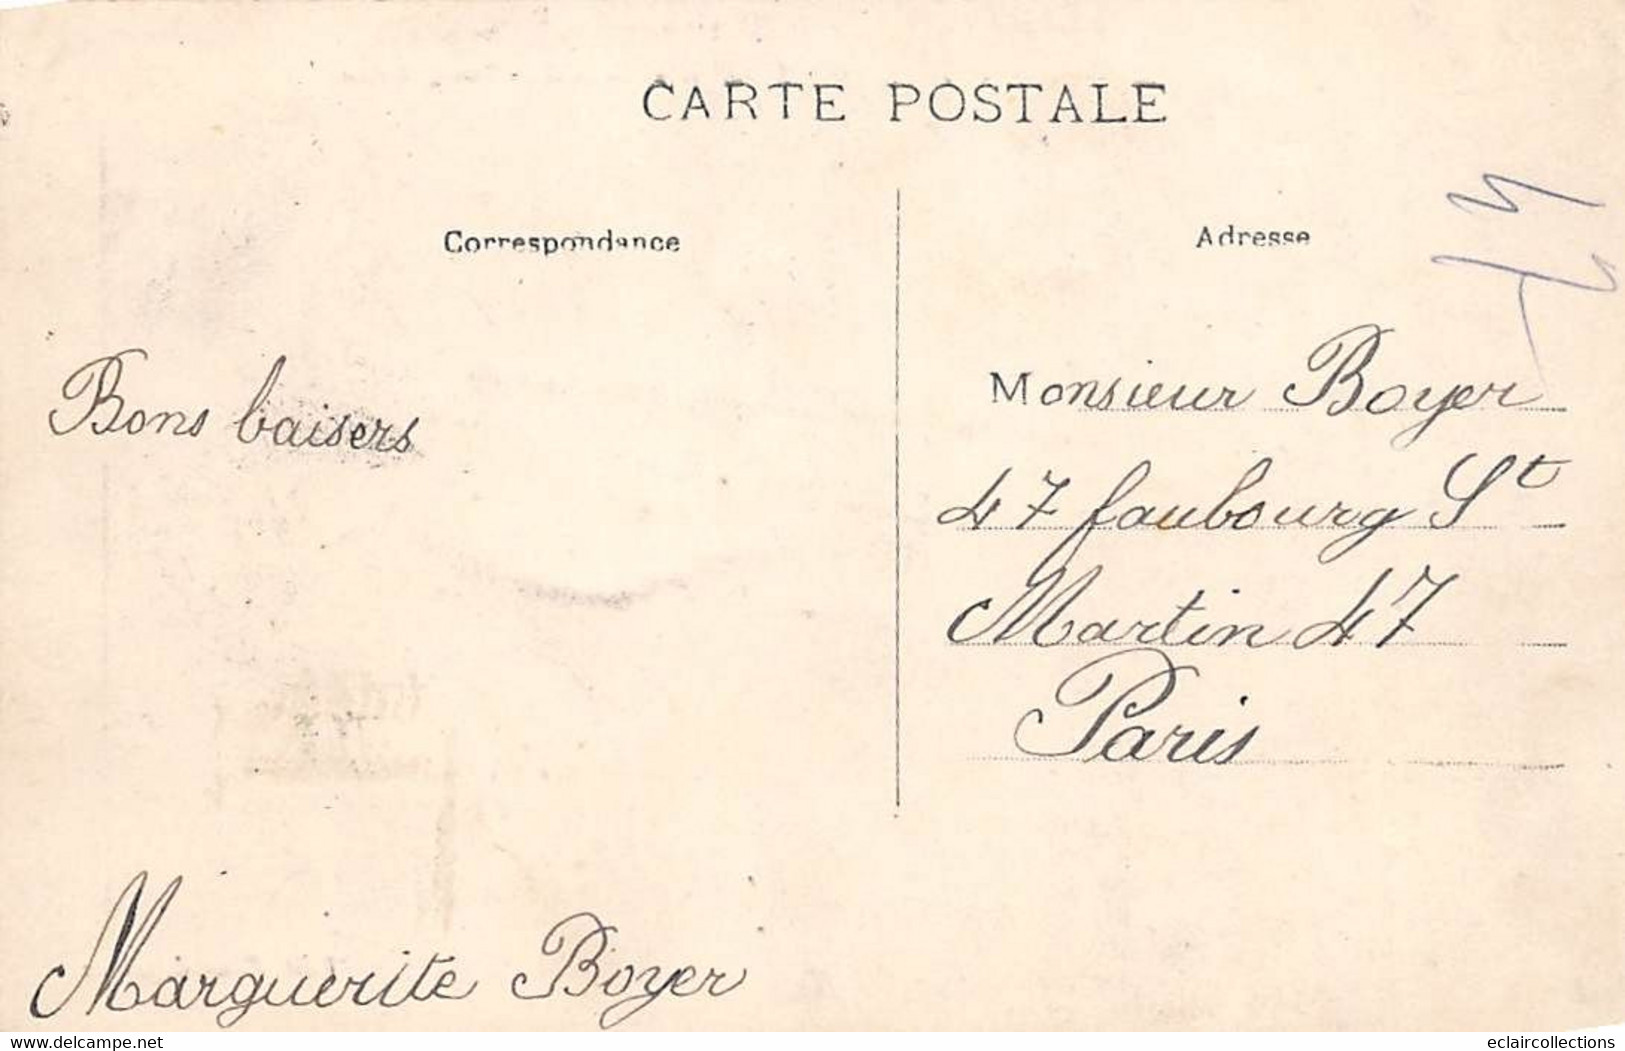 CARTE POSTALE
Correspondance
Adresse
Bons baisers
Marguerite Boyer
Monsieur Boyer
47 faubourg St
Martin 47
Paris
www.delcampe.net
eclaircollections